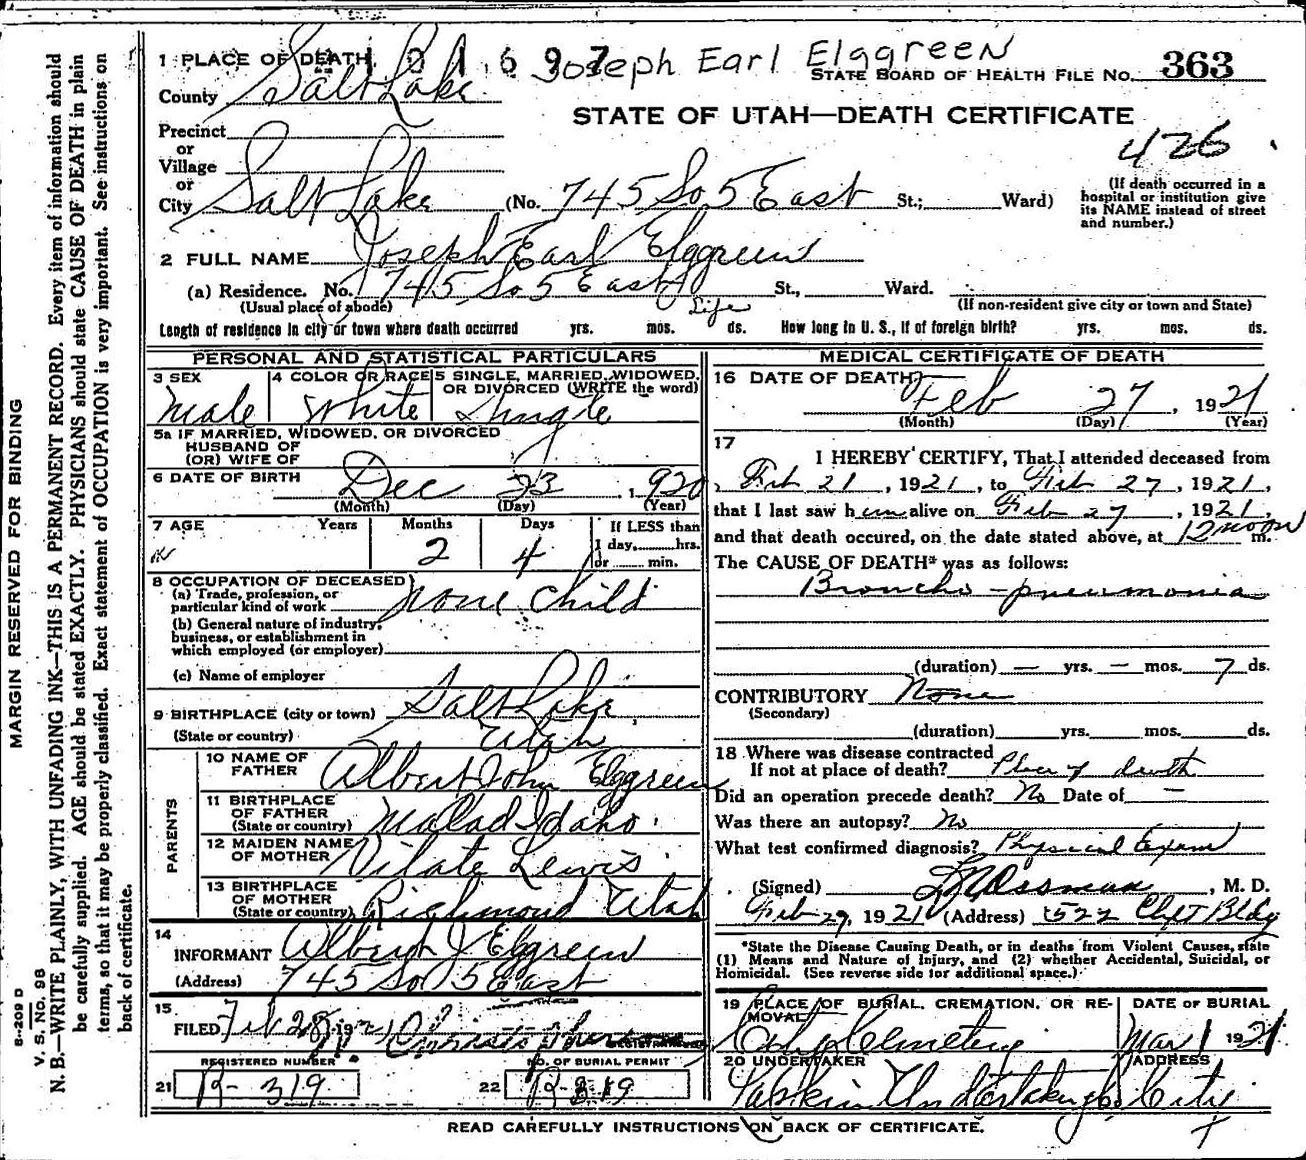 1 PLACE OF DEATH 2 1 6 9 7 Joseph Earl Elggreen
STATE BOARD OF HEALTH FILE NO. 363
County Salt Lake
STATE OF UTAH—DEATH CERTIFICATE
426
Precinct
or
Village
or
City Salt Lake (No. 745 So 5 East St.; Ward)
(If death occurred in a
hospital or institution give
its NAME instead of street
and number.)
2 FULL NAME Joseph Earl Elggreen
(a) Residence. No. 745 So 5 East St., Ward.
(Usual place of abode) (If non-resident give city or town and State)
Life
Length of residence in city or town where death occurred yrs. mos. ds. How long in U. S., if of foreign birth? yrs. mos. ds.
PERSONAL AND STATISTICAL PARTICULARS
3 SEX Male
4 COLOR OR RACE White
5 SINGLE, MARRIED, WIDOWED,
OR DIVORCED (WRITE the word)
Single
5a IF MARRIED, WIDOWED, OR DIVORCED
HUSBAND OF
(OR) WIFE OF
6 DATE OF BIRTH Dec 23, 1920
(Month) (Day) (Year)
7 AGE Years Months Days If LESS than
2 4 1 day, hrs.
or min.
8 OCCUPATION OF DECEASED
(a) Trade, profession, or
particular kind of work none child
(b) General nature of industry,
business, or establishment in
which employed (or employer)
(c) Name of employer
9 BIRTHPLACE (city or town) Salt Lake,
(State or country) Utah
PARENTS
10 NAME OF
FATHER Albert John Elggreen
11 BIRTHPLACE
OF FATHER
(State or country) Malad Idaho.
12 MAIDEN NAME
OF MOTHER Vilate Lewis
13 BIRTHPLACE
OF MOTHER
(State or country) Richmond Utah
14
INFORMANT Albert J Elggreen
(Address) 745 So 5 East
15
FILED Feb 28, 1921
REGISTRAR
REGISTERED NUMBER
21 R-319
NO. OF BURIAL PERMIT
22 R-319
MEDICAL CERTIFICATE OF DEATH
16 DATE OF DEATH
Feb 27, 1921
(Month) (Day) (Year)
17
I HEREBY CERTIFY, That I attended deceased from
Feb 21, 1921, to Feb 27, 1921,
that I last saw him alive on Feb 27, 1921,
and that death occured, on the date stated above, at 12 noon m.
The CAUSE OF DEATH* was as follows:
Broncho-pneumonia
(duration) — yrs. — mos. 7 ds.
CONTRIBUTORY None
(Secondary)
(duration) yrs. mos. ds.
18 Where was disease contracted
If not at place of death? Place of death
Did an operation precede death? No Date of —
Was there an autopsy? No
What test confirmed diagnosis? Physical Exam
(Signed) , M. D.
Feb 27, 1921 (Address) 522 Clift Bldg
*State the Disease Causing Death, or in deaths from Violent Causes, state
(1) Means and Nature of Injury, and (2) whether Accidental, Suicidal, or
Homicidal. (See reverse side for additional space.)
19 PLACE OF BURIAL, CREMATION, OR RE-
MOVAL
City Cemetery
DATE OF BURIAL
Mar 1 1921
20 UNDERTAKER
Undertaking Co.
ADDRESS
City
READ CAREFULLY INSTRUCTIONS ON BACK OF CERTIFICATE.
MARGIN RESERVED FOR BINDING
8-209 D
V. S. NO. 98
N. B.—WRITE PLAINLY, WITH UNFADING INK—THIS IS A PERMANENT RECORD. Every item of information should
be carefully supplied. AGE should be stated EXACTLY. PHYSICIANS should state CAUSE OF DEATH in plain
terms, so that it may be properly classified. Exact statement of OCCUPATION is very important. See instructions on
back of certificate.